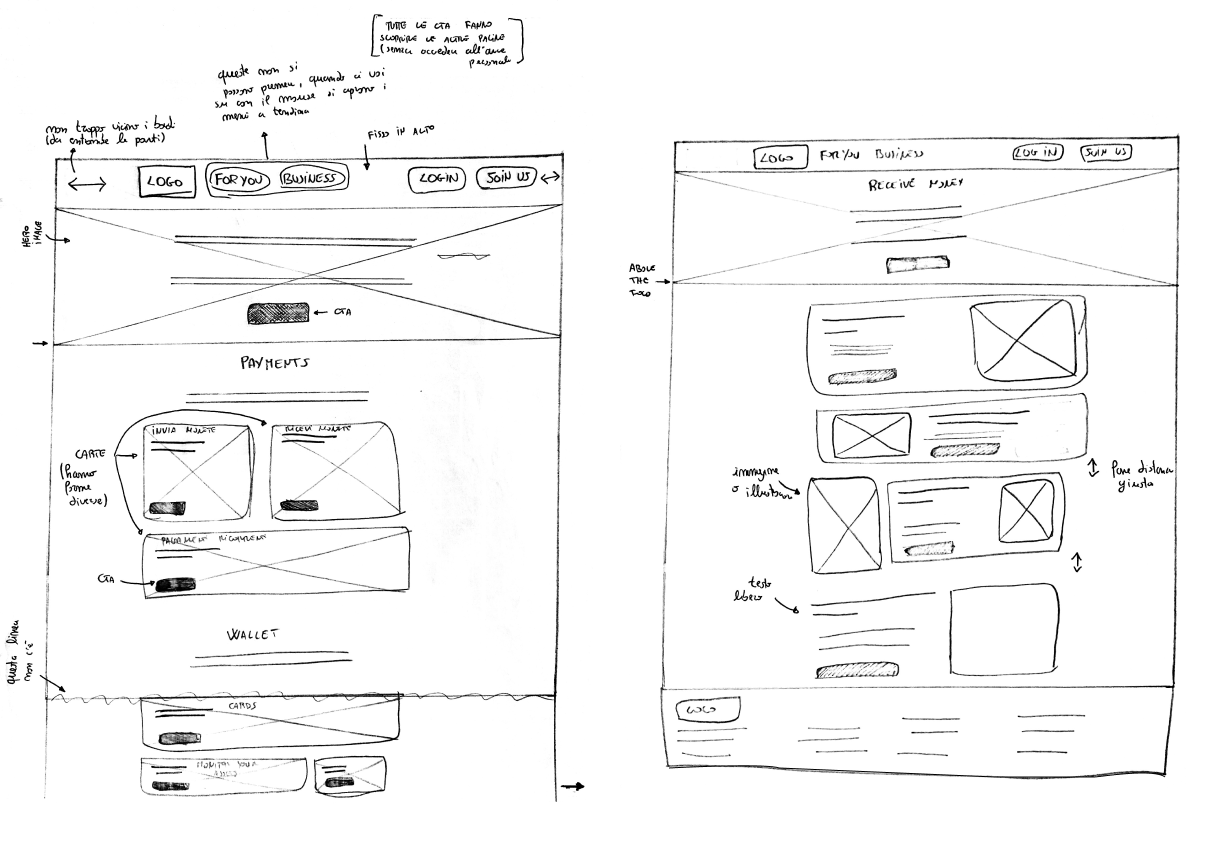 TUTTE LE CTA FANNO
SCOPRIRE LE ALTRE PAGINE
(senza accedere all'area
personale
queste non si
possono premere, quando ci vai
su con il mouse si aprono i
menù a tendina
non troppo vicino i bordi
(da entrambe le parti)
FISSO IN ALTO
LOGO
FOR YOU
BUSINESS
LOGIN
JOIN US
HERO
IMAGE
CTA
PAYMENTS
INVIA MONETE
RICEVI MONETE
CARTE
(hanno
forme
diverse)
PAGAMENTI RICORRENTI
CTA
WALLET
questa linea
non c'è
CARDS
MONITOR YOUR
LOGO
FOR YOU
BUSINESS
LOG IN
JOIN US
RECEIVE MONEY
ABOVE
THE
FOLD
immagine
o illustrazione
Porre distanza
giusta
testo
libero
LOGO